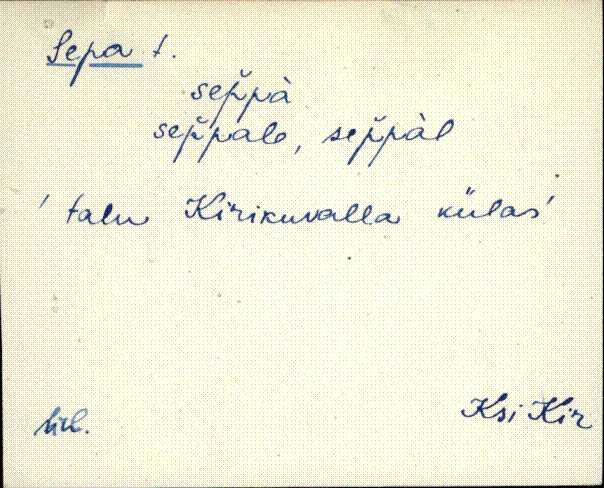 Sepa t.
sep̆pà
sep̆pale, sep̆pàl
' talu Kirikuvalla külas'
Ksi Kir